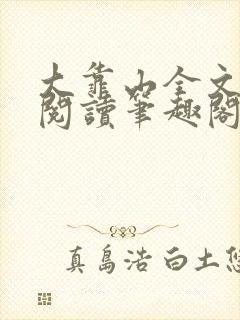 大靠山全文
閱讀筆趣閣
真島浩 白土悠